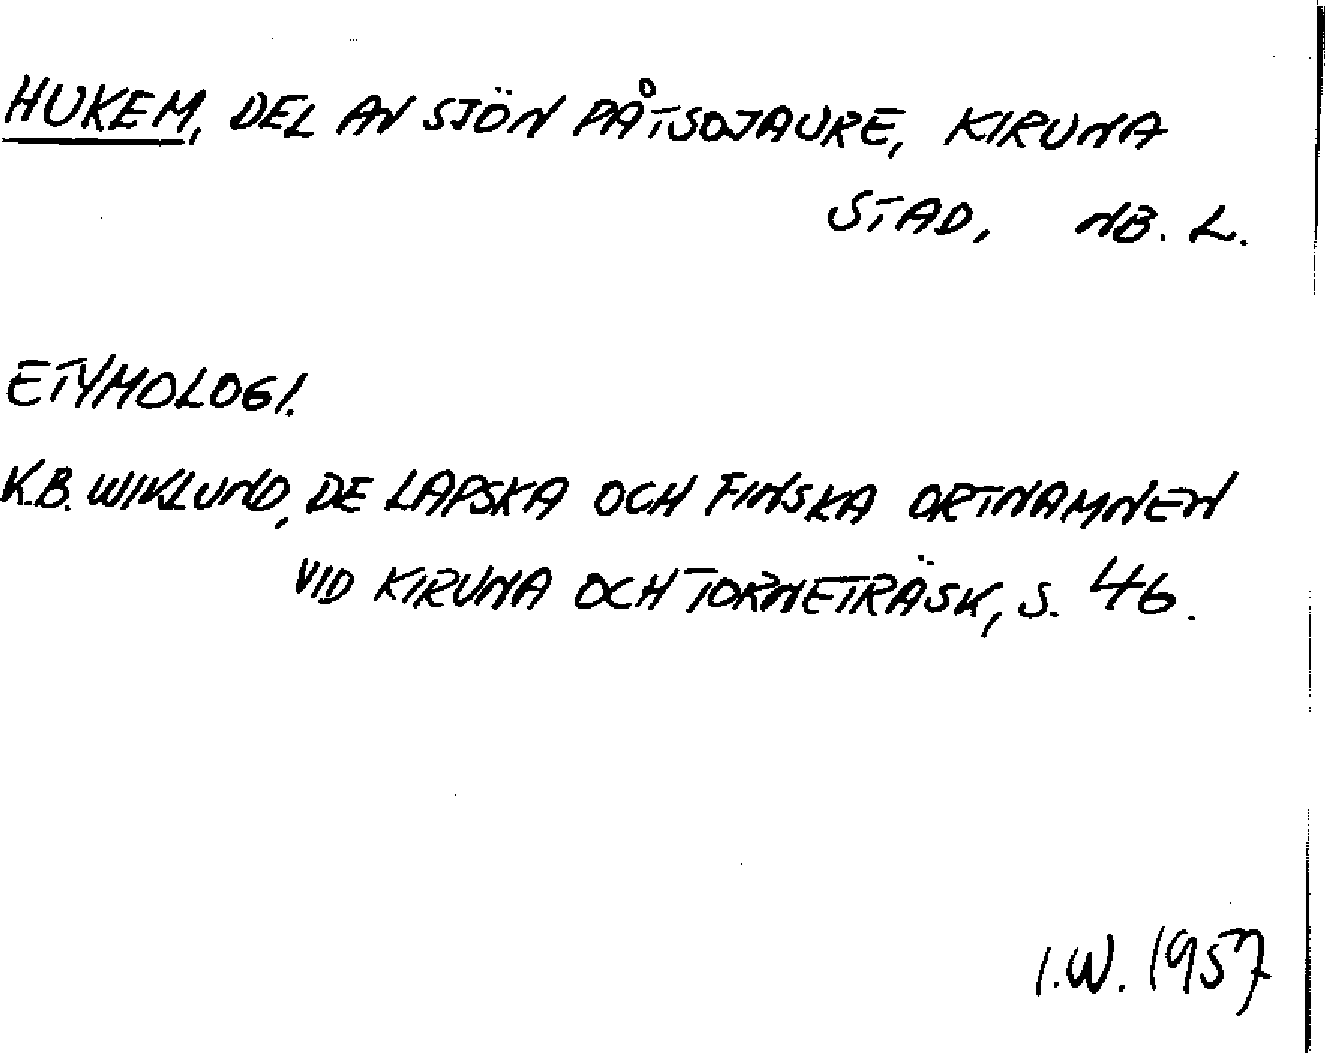 HUKEM, DEL AV SJÖN PÅTSOJAURE, KIRUNA
STAD, NB. L.
ETYMOLOGI.
K.B. WIKLUND, DE LAPSKA OCH FINSKA ORTNAMNEN
VID KIRUNA OCH TORNETRÄSK, S. 46.
I.W. 1957